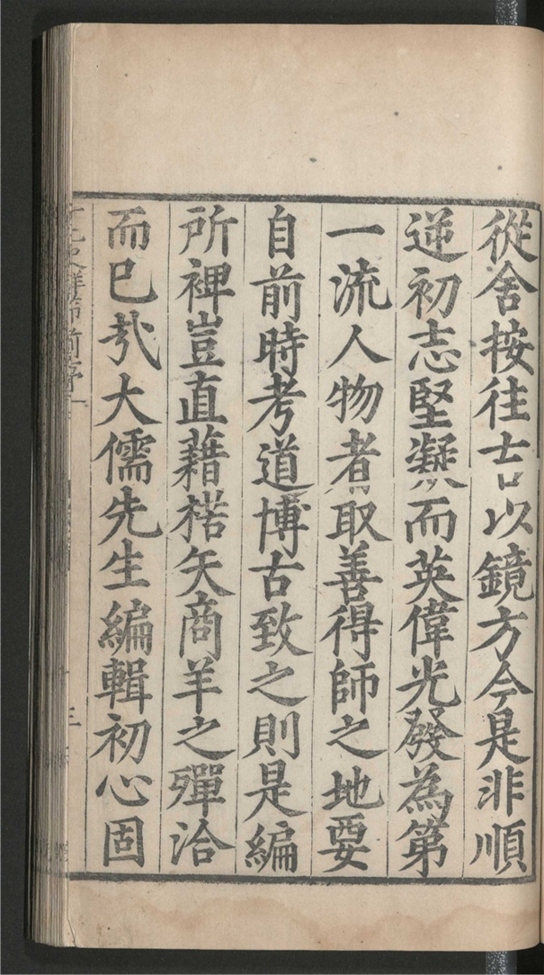 從舍按往古以鏡方今是非順
逆初志堅凝而英偉光發為第
一流人物者取善得師之地要
自前時考道博古致之則是編
所裨豈直藉楛矢商羊之殫洽
而巳㢤大儒先生編輯初心固